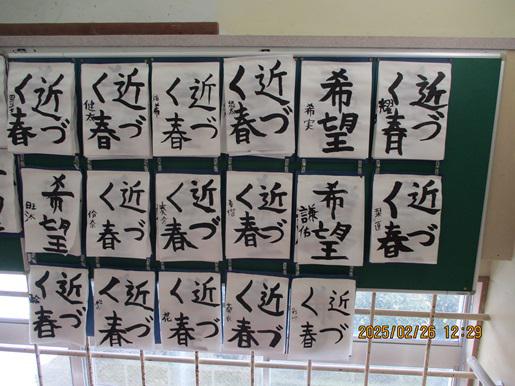 近づく春
近づく春 健太
近づく春
近づく春
希望 希実
近づく春 耀
希望
近づく春 伶奈
近づく春
近づく春
希望 謙佑
近づく春
近づく春
近づく春
近づく春 花
近づく春
近づく春
2025/02/26 12:29